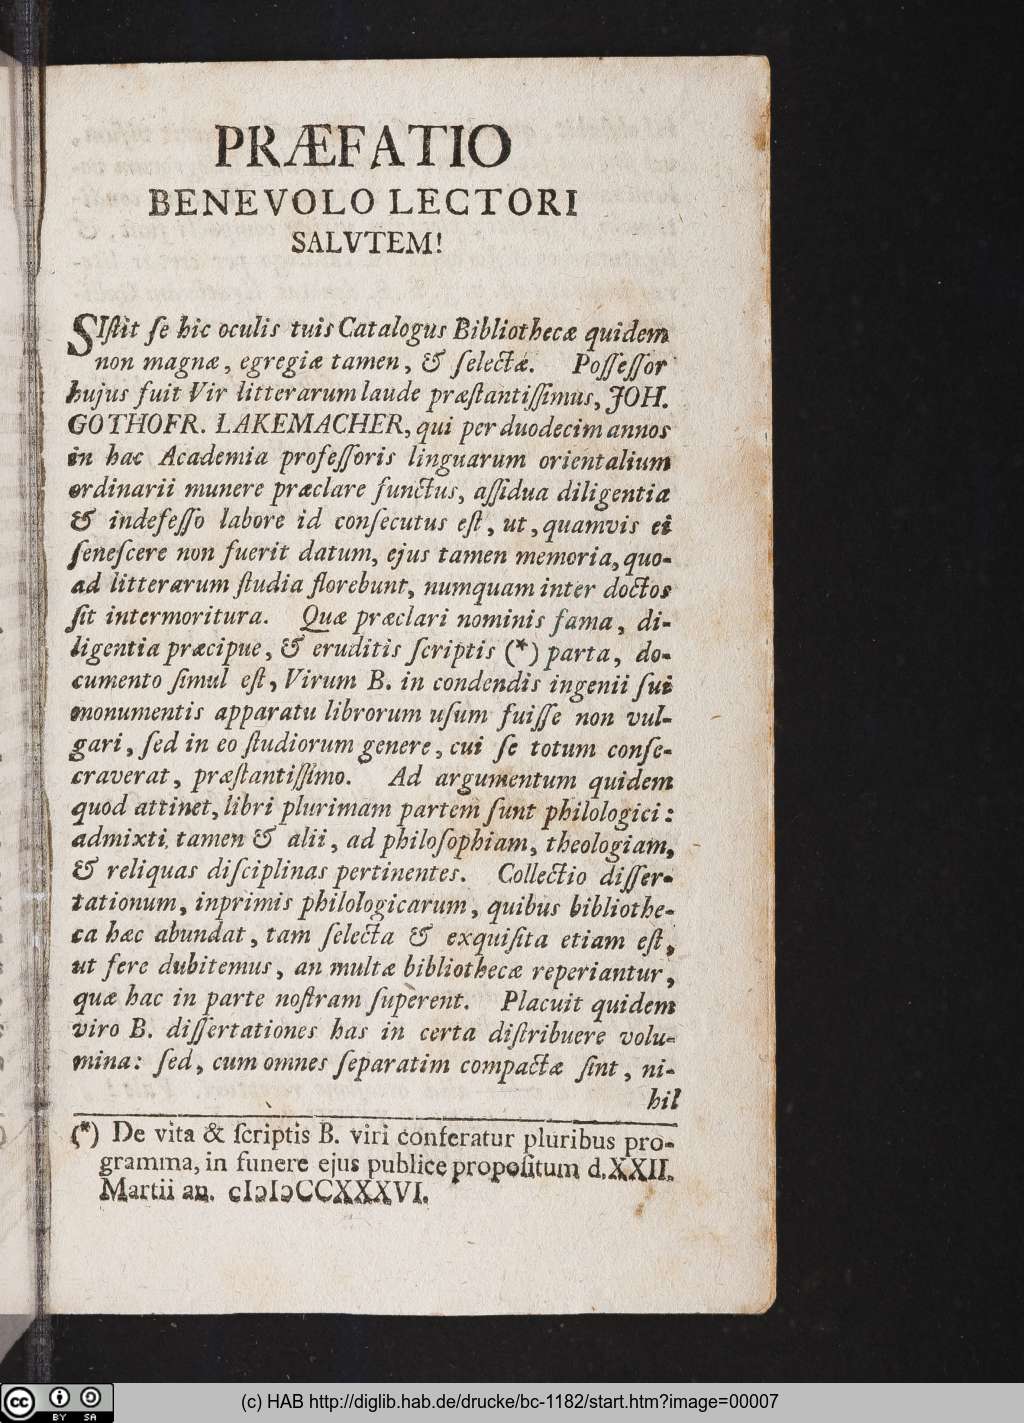 PRÆFATIO
BENEVOLO LECTORI
SALVTEM!
SIſtit ſe hic oculis tuis Catalogus Bibliothecæ quidem
non magnæ, egregiæ tamen, & ſelectæ. Poſſeſſor
hujus fuit Vir litterarum laude præſtantiſſimus, JOH.
GOTHOFR. LAKEMACHER, qui per duodecim annos
in hac Academia profeſſoris linguarum orientalium
ordinarii munere præclare functus, aſſidua diligentia
& indefeſſo labore id conſecutus eſt, ut, quamvis ei
ſeneſcere non fuerit datum, ejus tamen memoria, quo-
ad litterarum ſtudia florebunt, numquam inter doctos
ſit intermoritura. Quæ præclari nominis fama, di-
ligentia præcipue, & eruditis ſcriptis (*) parta, do-
cumento ſimul eſt, Virum B. in condendis ingenii ſui
monumentis apparatu librorum uſum fuiſſe non vul-
gari, ſed in eo ſtudiorum genere, cui ſe totum conſe-
craverat, præſtantiſſimo. Ad argumentum quidem
quod attinet, libri plurimam partem ſunt philologici:
admixti tamen & alii, ad philoſophiam, theologiam,
& reliquas diſciplinas pertinentes. Collectio diſſer-
tationum, inprimis philologicarum, quibus bibliothe-
ca hæc abundat, tam ſelecta & exquiſita etiam eſt,
ut fere dubitemus, an multæ bibliothecæ reperiantur,
quæ hac in parte noſtram ſuperent. Placuit quidem
viro B. diſſertationes has in certa diſtribuere volu-
mina: ſed, cum omnes ſeparatim compactæ ſint, ni-
hil
(*) De vita & ſcriptis B. viri conferatur pluribus pro-
gramma, in funere ejus publice propoſitum d. XXII.
Martii an. cIɔIɔCCXXXVI.
(c) HAB http://diglib.hab.de/drucke/bc-1182/start.htm?image=00007
cc
BY SA